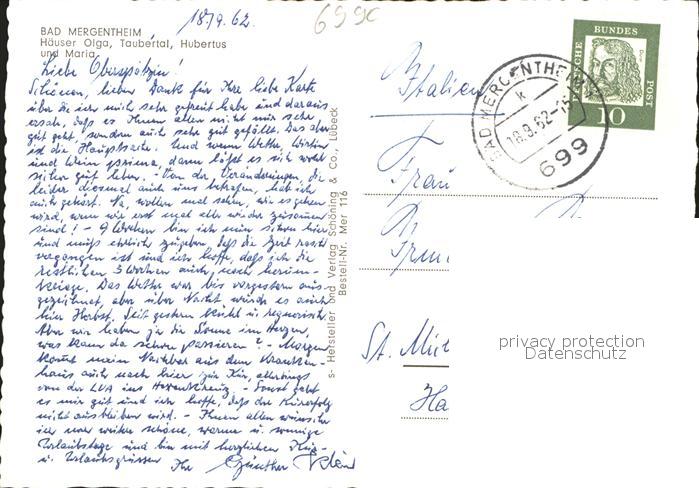 18/9.62.
699c
BAD MERGENTHEIM
Häuser Olga, Taubertal, Hubertus
und Maria
Liebe Oberspätzin!
Schönen, lieben Dank für Ihre liebe Karte
über die ich mich sehr gefreut habe und daraus
ersah, daß es Ihnen allen nicht nur sehr
gut geht sondern auch sehr gut gefällt. Das aber
ist die Hauptsache. Und wenn Wetter, Wirtin
und Wein prima, dann läßt es sich wohl
sicher gut leben. - Von der Veränderungen, die
leider diesmal auch uns betrafen, hab ich
auch gehört. Na, wollen mal sehen, wie es gehen
wird, wenn wir erst mal alle wieder zusammen
sind! - 9 Wochen bin ich nun schon hier
und muß ehrlich zugeben, daß die Zeit rasch
vergangen ist und ich hoffe, daß ich die
restlichen 3 Wochen auch noch herum-
kriege. Das Wetter war bis vorgestern aus-
gezeichnet, aber über Nacht wurde es auch
hier Herbst. Seit gestern kühl u. regnerisch.
Aber wir haben ja die Sonne im Herzen,
was kann da schon passieren? - Morgen
kommt mein Nachbar aus dem Kranken-
haus auch nach hier zur Kur, allerdings
von der LVA ins Sonst geht
es mir gut und ich hoffe, daß der Kurerfolg
nicht ausbleiben wird. - Ihnen allen wünsche
ich noch weitere schöne, warme u. sonnige
Urlaubstage und bin mit herzlichen Kur-
u. Urlaubsgrüssen Ihr Günther
s- Hersteller und Verlag Schöning & Co., Lübeck
Bestell-Nr. Mer 116
BAD MERGENTHEIM
k
18.9.62-15
699
DEUTSCHE BUNDESPOST
10
Italien
Frau
St.
privacy protection
Datenschutz